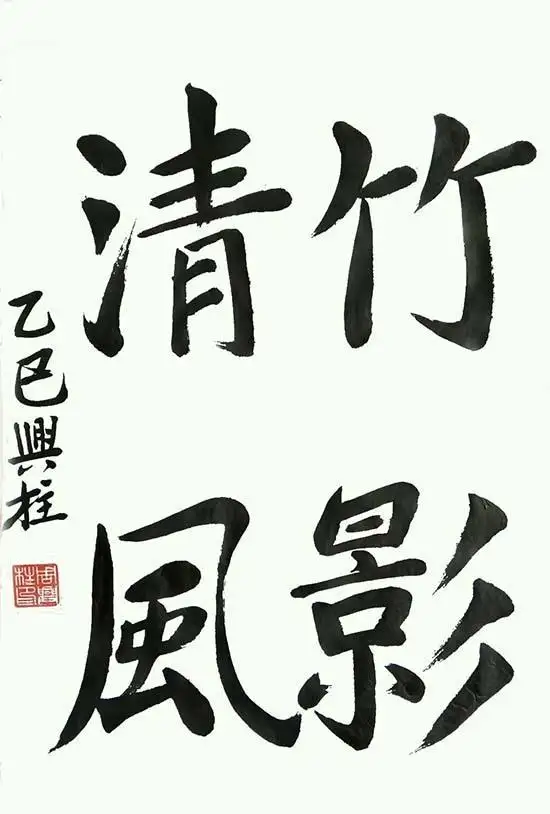 竹影
清風
乙巳興柱